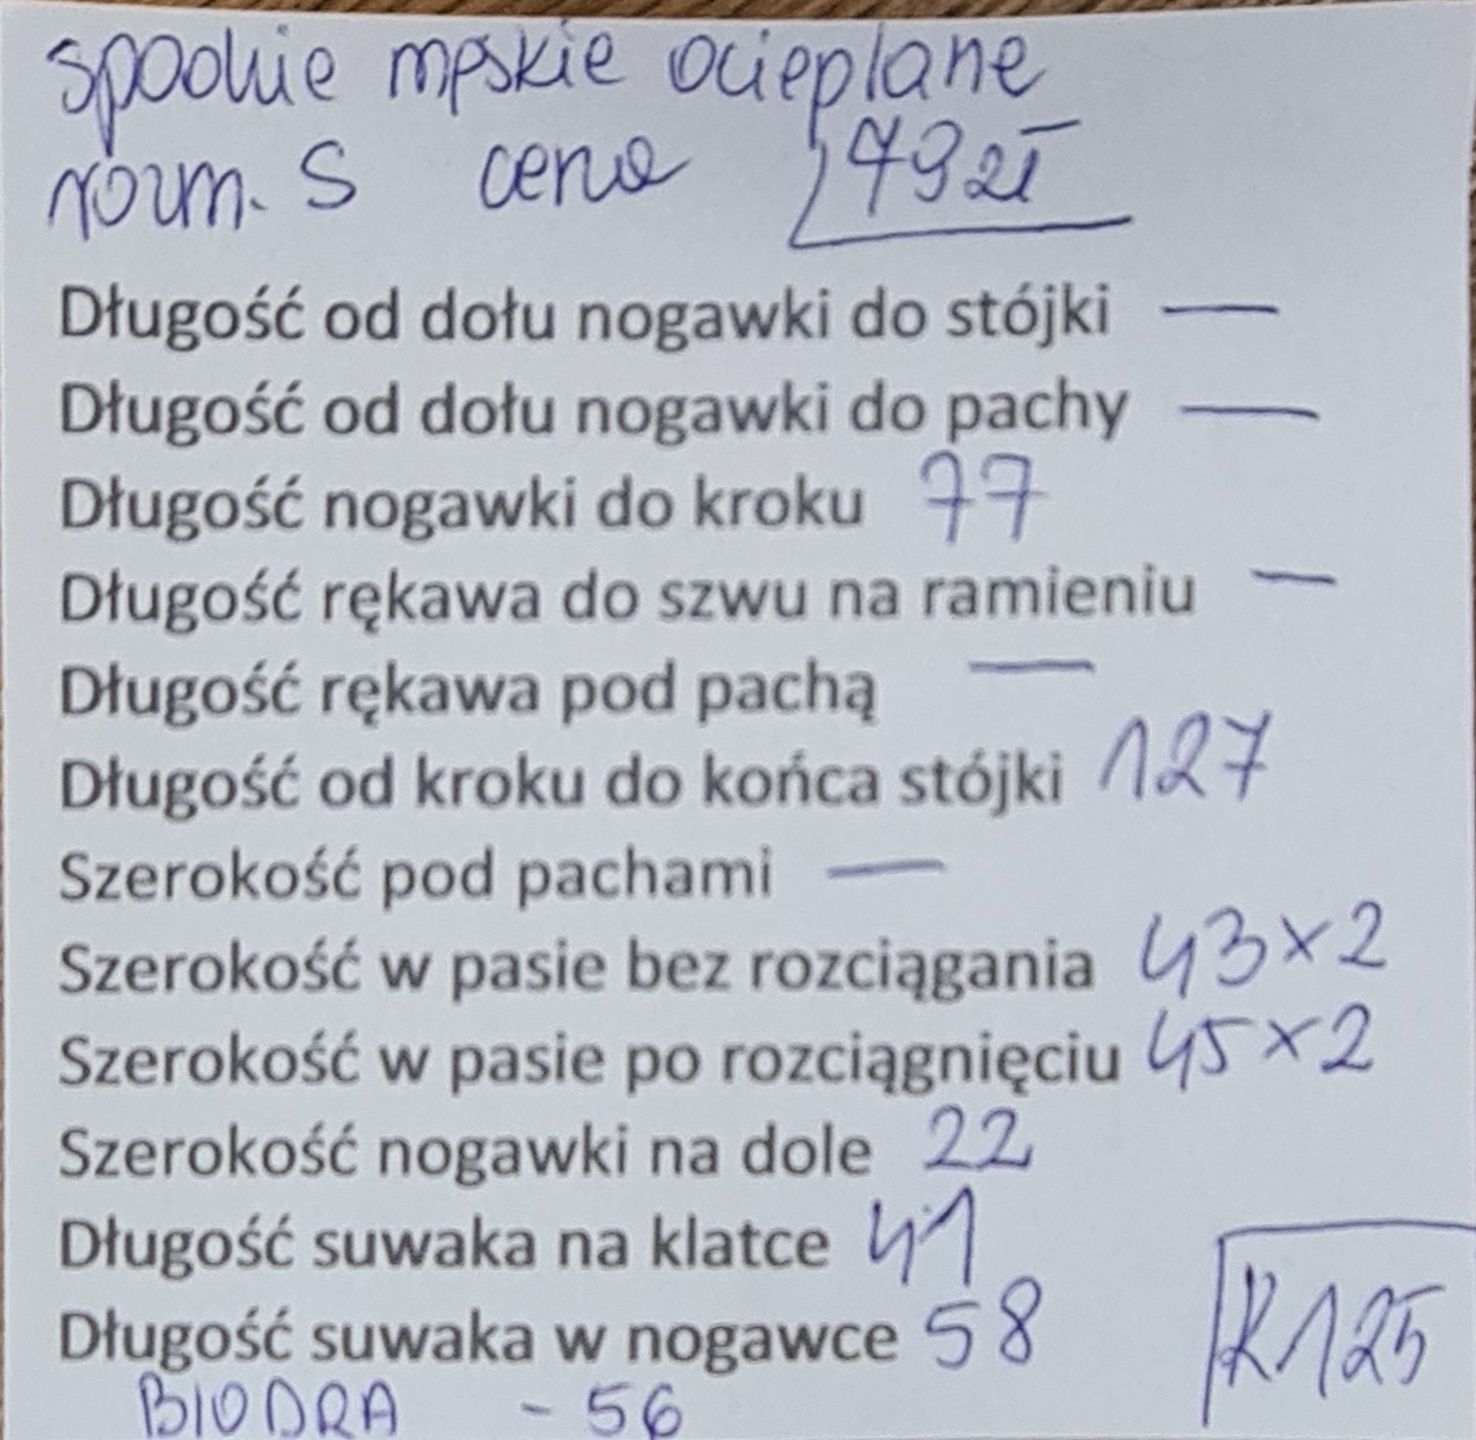 spodnie męskie ocieplane
rozm. S cena 79 zł
Długość od dołu nogawki do stójki —
Długość od dołu nogawki do pachy —
Długość nogawki do kroku 77
Długość rękawa do szwu na ramieniu —
Długość rękawa pod pachą —
Długość od kroku do końca stójki 127
Szerokość pod pachami —
Szerokość w pasie bez rozciągania 43×2
Szerokość w pasie po rozciągnięciu 45×2
Szerokość nogawki na dole 22
Długość suwaka na klatce 41
Długość suwaka w nogawce 58
BIODRA - 56
K125